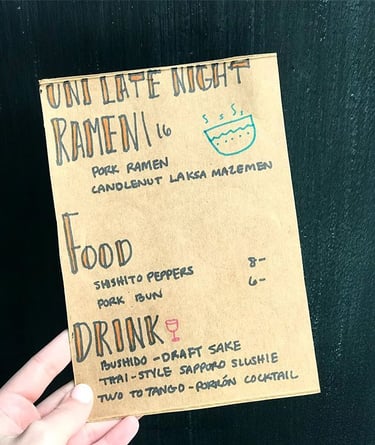 UNI LATE NIGHT
RAMEN| 16
PORK RAMEN
CANDLENUT LAKSA MAZEMEN
FOOD
SHISHITO PEPPERS 8-
PORK BUN 6-
DRINK
BUSHIDO - DRAFT SAKE
THAI-STYLE SAPPORO SLUSHIE
TWO TO TANGO - PORRÓN COCKTAIL